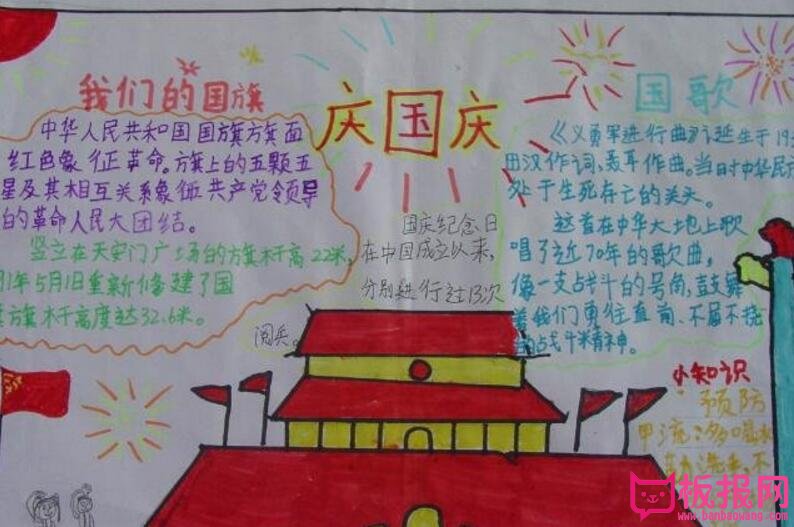 庆国庆
我们的国旗
中华人民共和国国旗旗面
红色象征革命。旗上的五颗五
星及其相互关系象征共产党领导
的革命人民大团结。
竖立在天安门广场的旗杆高22米,
91年5月1日重新修建了国
旗旗杆高度达32.6米。
国庆纪念日
在中国成立以来,
分别进行过13次
阅兵。
国歌
《义勇军进行曲》诞生于193
田汉作词,聂耳作曲。当时中华民
处于生死存亡的关头。
这首在中华大地上歌
唱了近70年的歌曲,
像一支战斗的号角,鼓舞
着我们勇往直前、不屈不挠
的战斗精神。
小知识
预防
甲流:多喝水
勤洗手,不
板报网
www.banbaowang.com